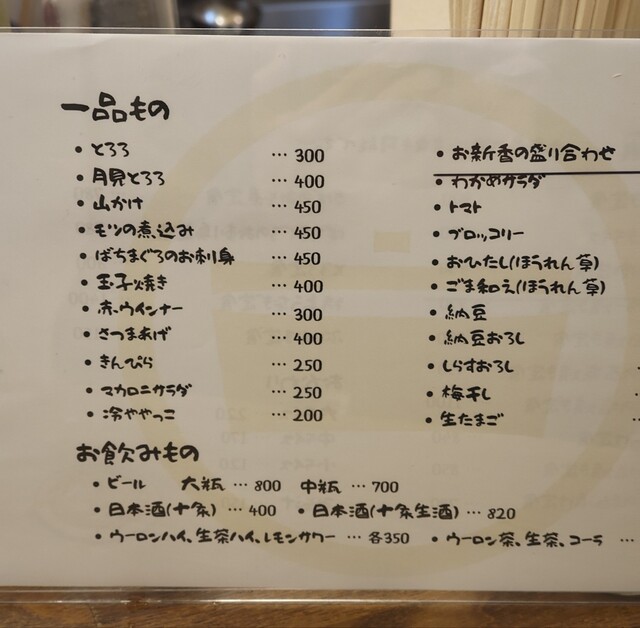 一品もの
・とろろ … 300
・月見とろろ … 400
・山かけ … 450
・モツの煮込み … 450
・ばちまぐろのお刺身 … 450
・玉子焼き … 400
・赤ウインナー … 300
・さつまあげ … 400
・きんぴら … 250
・マカロニサラダ … 250
・冷ややっこ … 200
・お新香の盛り合わせ
・わかめサラダ
・トマト
・ブロッコリー
・おひたし(ほうれん草)
・ごま和え(ほうれん草)
・納豆
・納豆おろし
・しらすおろし
・梅干し
・生たまご
お飲みもの
・ビール 大瓶 … 800 中瓶 … 700
・日本酒(十条) … 400 ・日本酒(十条生酒) … 820
・ウーロンハイ、生茶ハイ、レモンサワー … 各350 ・ウーロン茶、生茶、コーラ …